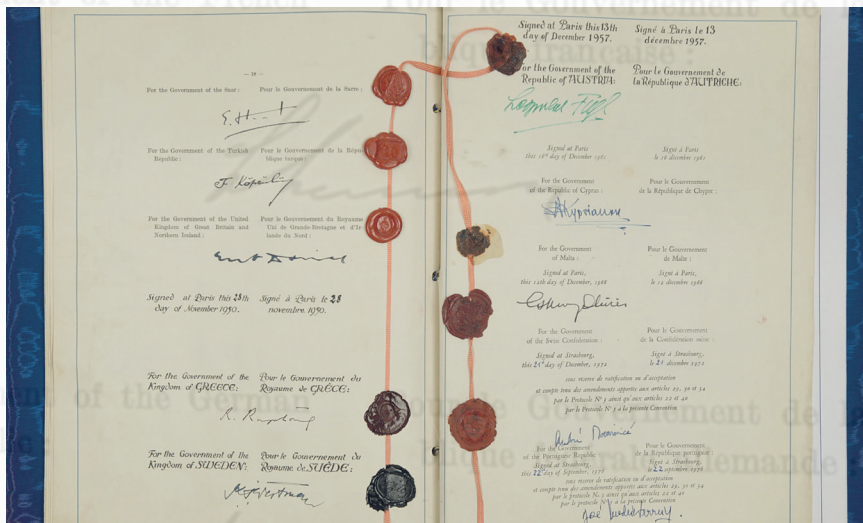 — 18 —
For the Government of the Saar:
Pour le Gouvernement de la Sarre:
For the Government of the Turkish
Republic:
Pour le Gouvernement de la Répu-
blique turque:
For the Government of the United
Kingdom of Great Britain and
Northern Ireland:
Pour le Gouvernement du Royaume
Uni de Grande-Bretagne et d'Ir-
lande du Nord:
Signed at Paris this 28th
day of November 1950.
Signé à Paris le 28
novembre 1950.
For the Government of the
Kingdom of GREECE:
Pour le Gouvernement du
Royaume de GRÈCE:
For the Government of the
Kingdom of SWEDEN:
Pour le Gouvernement du
Royaume de SUÈDE:
Signed at Paris this 13th
day of December 1957.
Signé à Paris le 13
décembre 1957.
For the Government of the
Republic of AUSTRIA:
Pour le Gouvernement de
la République d'AUTRICHE:
Leopold Figl
Signed at Paris
this 16th day of December 1961
Signé à Paris
le 16 décembre 1961
For the Government
of the Republic of Cyprus:
Pour le Gouvernement
de la République de Chypre:
Kyprianou
For the Government
of Malta:
Pour le Gouvernement
de Malte:
Signed at Paris,
this 12th day of December, 1966
Signé à Paris,
le 12 décembre 1966
For the Government
of the Swiss Confederation:
Pour le Gouvernement
de la Confédération suisse:
Signed at Strasbourg,
this 21st day of December, 1972
Signé à Strasbourg,
le 21 décembre 1972
sous réserve de ratification ou d'acceptation
et compte tenu des amendements apportés aux articles 29, 30 et 34
par le Protocole N° 3 ainsi qu'aux articles 22 et 40
par le Protocole N° 5 à la présente Convention
For the Government
of the Portuguese Republic:
Pour le Gouvernement
de la République portugaise:
Signed at Strasbourg,
this 22nd day of September, 1976
Signé à Strasbourg,
le 22 septembre 1976
sous réserve de ratification ou d'acceptation
et compte tenu des amendements apportés aux articles 29, 30 et 34
par le protocole N. 3 ainsi qu'aux articles 22 et 40
par le protocole N. 5 à la présente Convention